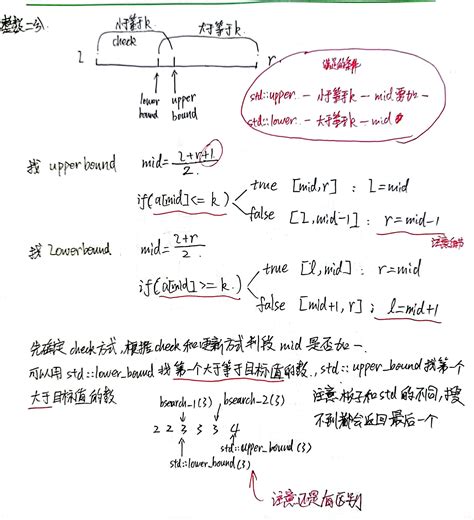 整数二分
小于等于k 大于等于k
check
l r
lower bound upper bound
满足的条件
std::upper — 小于等于k — mid要加一
std::lower — 大于等于k — mid
找 upper bound mid = l+r+1 / 2
if(a[mid] <= k) true [mid,r] : l=mid
false [l,mid-1] : r=mid-1
注意细节
找 lower bound mid = l+r / 2
if(a[mid] >= k) true [l,mid] : r=mid
false [mid+1,r] : l=mid+1
先确定check方式,根据check和更新方式判断 mid 是否加一.
可以用 std::lower_bound 找第一个大于等于目标值的数, std::upper_bound 找第一个
大于目标值的数
注意板子和std的不同,搜
不到都会返回最后一个
bsearch_1(3) bsearch_2(3)
2 2 3 3 3 4
std::upper_bound(3)
std::lower_bound(3)
注意还是有区别